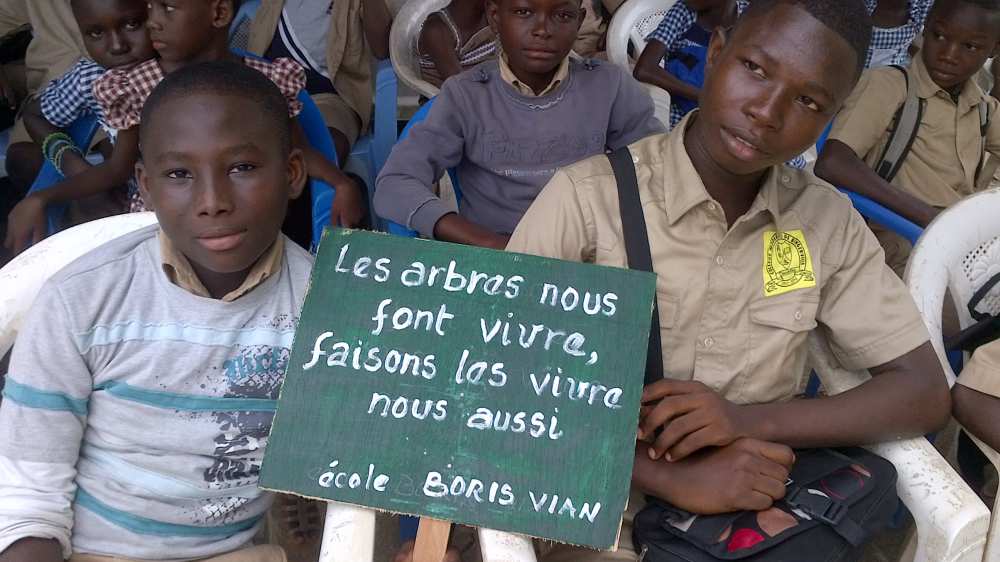 Les arbres nous
font vivre,
faisons les vivre
nous aussi
école BORIS VIAN